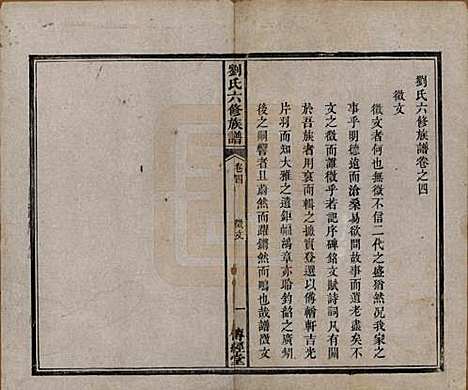 劉氏六修族譜卷之四
徵文
徵文者何也無徵不信二代之盛猶然況我家
事乎明德遠而滄桑易欲問故事而遺老盡矣不
文之徵而徵乎若記序碑銘文賦詩詞凡有關
於吾族者用裒而輯之摭實登選以傳輶軒吉光
片羽而知大雅之遺鉅幅鴻章亦
後之嗣響者且蔚然而躍鏘然而鳴也哉譜徵文
劉氏六修族譜
卷四
徵文
一
傳經堂